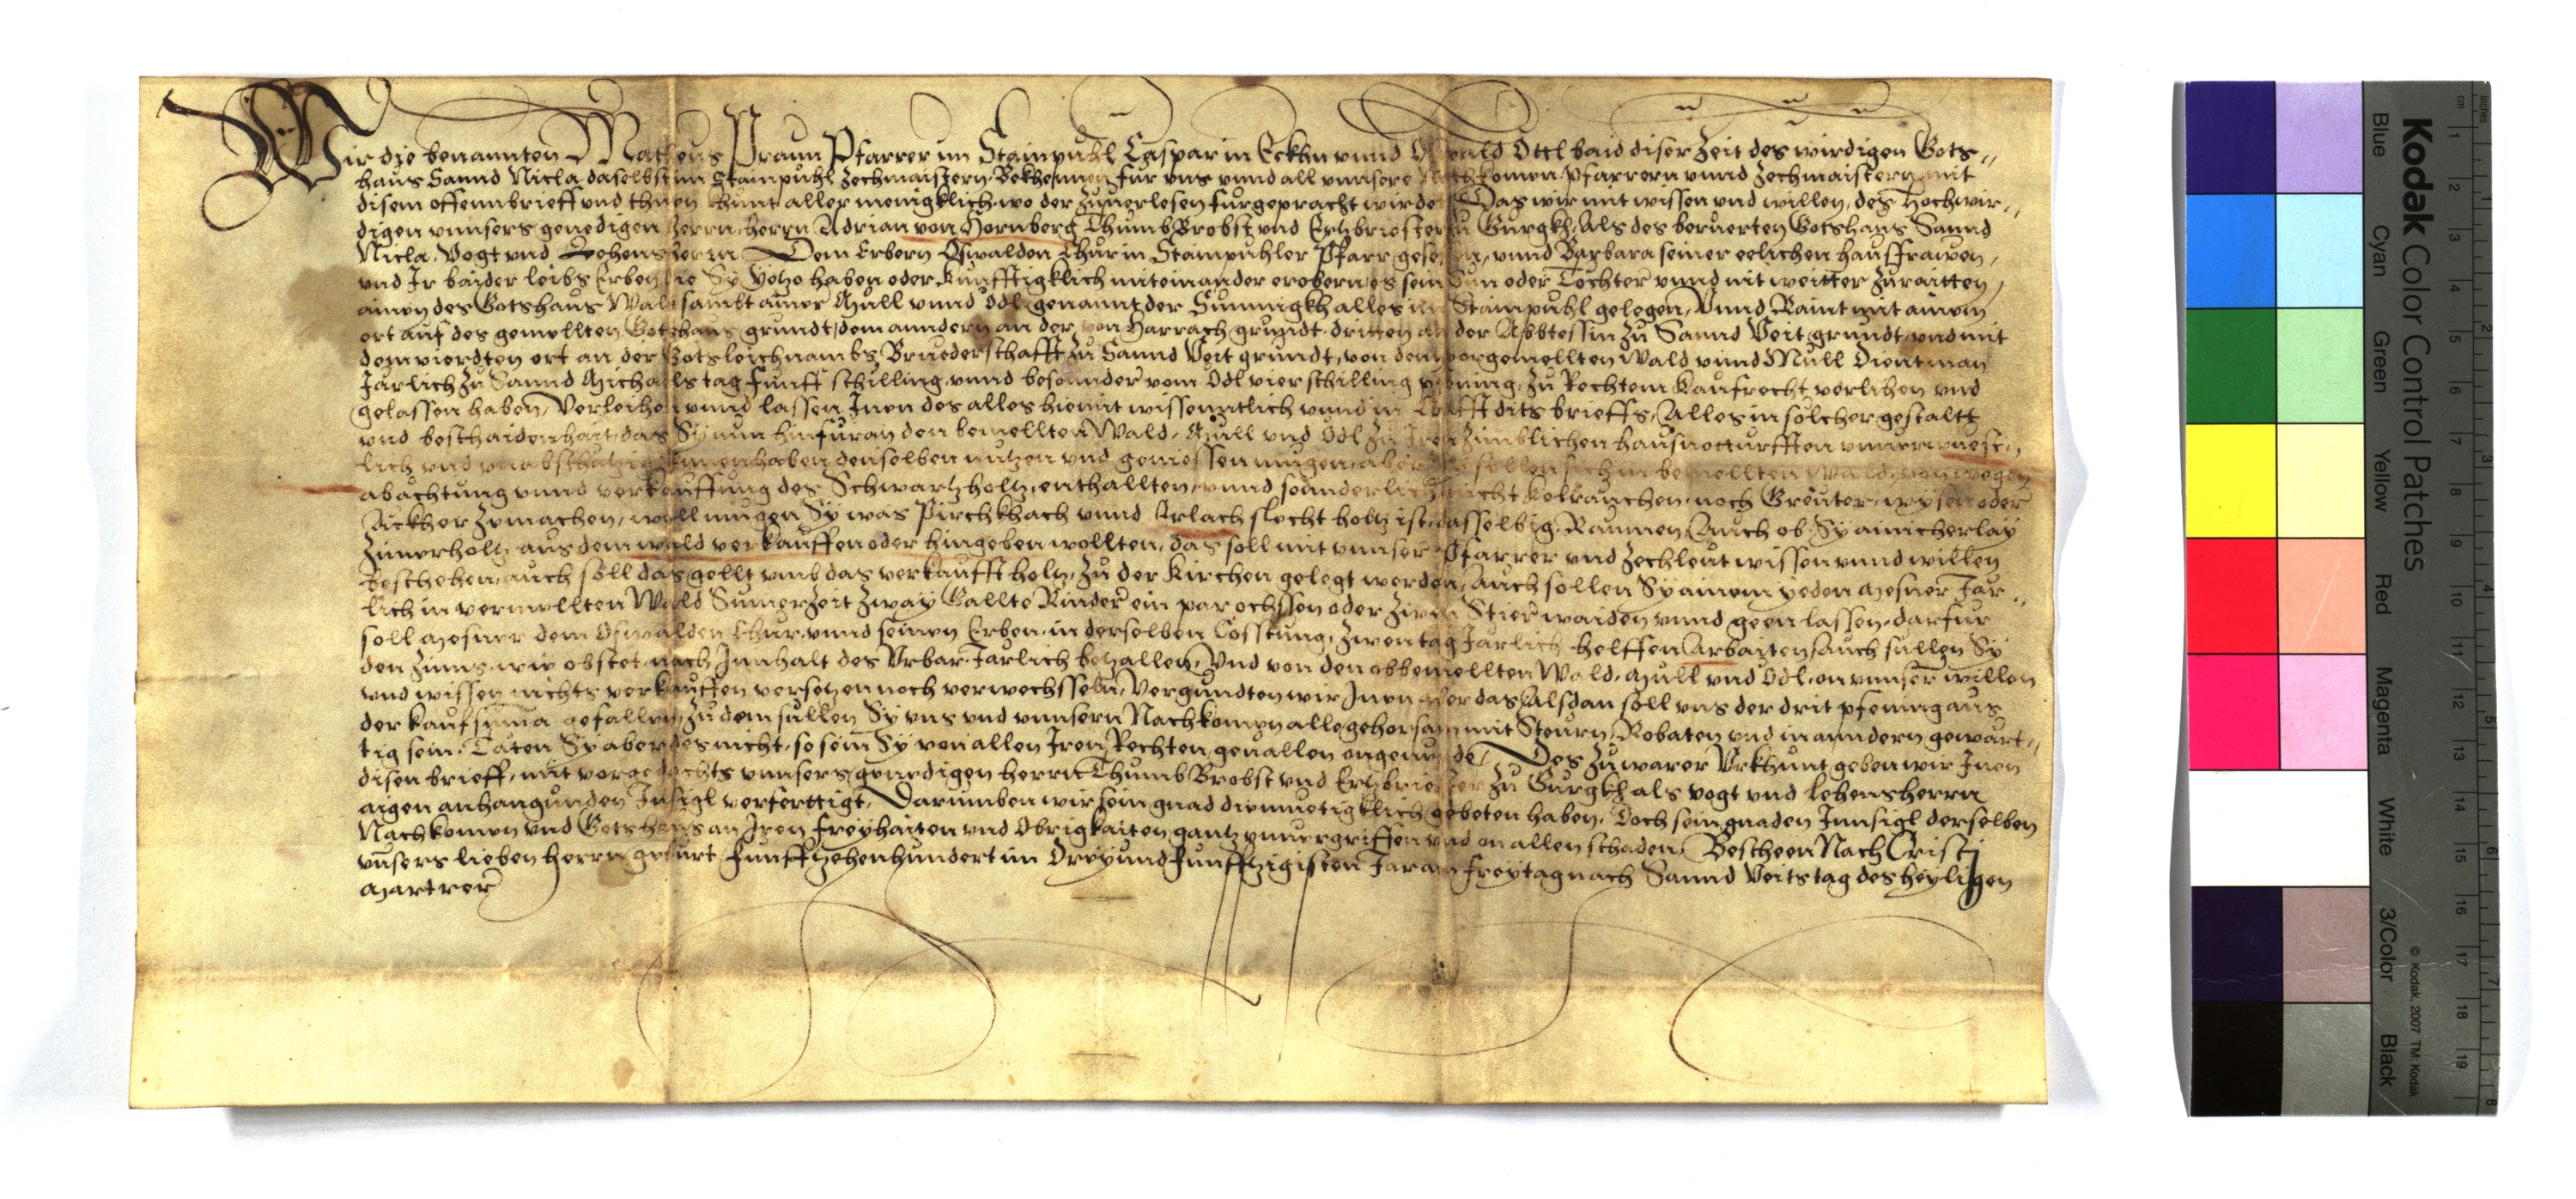 Wir die benannten Matheus Praun Pfarrer im Stainpuhl Caspar in Eckhn vnnd Oswald Ottl baid diser Zeit des wirdigen Gots-
haus Sannd Nicla daselbst im Stainpuhl Zechmaistern, Bekhennen fur vns vnnd all vnnsere Nachkomen, Pfarrern vnnd Zechmaistern, mit
disem offenn brieff vnd thuen khunt aller menigklich, wo der Zuuerlesen furgepracht wirdet Das wir mit wissen vnd willen, des Hochwir-
digen vnnsers genedigen herrn, herrn Adrian von Hornberg ThumbBrobst vnd Ertzbriester zu Gurgkh, Als des beruerten Gotshaus Sannd
Nicla, Vogt vnd Lehensherrn Dem Erbern Oswalden Thur in Stainpuhler Pfarr gesessen, vnnd Barbara seiner eelichen hausfrawen,
vnd Ir baider leibs Erben die Sy Yetzo haben oder kunfftigklich miteinander erobern, es sein Sun oder Tochter vnnd nit weitter Zuraitten,
ainen des Gotshaus Wald sambt ainer Mull vnnd Ödl genannt der Sunnigkh alles im Stainpuhl gelegen, Vnnd Raint mit ainem
ort auf des gemellten Gotshaus grundt, dem anndern an der von Harrach grundt, dritten an der Abbtessin zu Sannd Veit grundt, vnd mit
dem vierdten ort an der Gotsleichnambs Bruederschafft zu Sannd Veit grundt, von dem vorgemellten Wald vnnd Mull Dient man
Jarlich zu Sannd Michaels tag funff schilling, vnnd besonnder vom Ödl vier schilling phening, zu Rechtem kaufrecht verlihen vnd
gelassen haben, Verleihen vnnd lassen Inen des alles hiemit wissenntlich vnnd in Crafft dits brieffs, Alles in solcher gestallt
vnd beschaidenhait, das Sy nun hinfuran den bemellten Wald, Mull vnd Ödl zu Iren zimblichen hausnotturfften vnuerwuest-
lich vnd vnabschatzig Innenhaben denselben nutzen vnd geniessen mugen, aber Sy sollen sich in bemellten Wald, von wegen
abachtung vnnd verkauffung des Schwartzholtz, enthallten, vnnd sounderlich nicht kolrauchen, noch Greuter, wysen oder
Äckher Zemachen, woll mugen Sy was Pirchkhach vnnd Erlach slecht holtz ist, dasselbig Raumen, Auch ob Sy ainicherlay
Zimerholtz aus dem wald verkauffen oder hingeben wollten, das soll mit vnnser Pfarrer vnd Zechleut wissen vnnd willen
beschehen, auch soll das gellt vmb das verkaufft holtz, zu der Kirchen gelegt werden, Auch sollen Sy ainem yeden Mesner Jar-
lich in vermellten Wald Sumerzeit zway Gallte Rinder ein par ochssen oder zwen Stier waiden vnnd geen lassen, darfur
soll Mesner dem Oswalden Thur vnnd seinen Erben in derselben Cosstung, zwen tag Jarlich helffen Arbaiten, Auch sullen Sy
den Zinns, wie obstet, nach Innhalt des Vrbar Jarlich betzallen, Vnd von den obbemellten Wald, Mull vnd Ödl, on vnnser willen
vnd wissen nichts verkauffen versetzen noch verwechsseln, Vergundten wir Inen aber das, Alsdan soll vns der drit pfening aus
der kaufsuma gefallen, zu dem sullen Sy vns vnd vnnsern Nachkomen alle gehorsam mit Steurn, Robaten vnd in anndern gewart-
tig sein, Täten Sy aber des nicht, so sein Sy von allen Iren Rechten geuallen ongeuerde, Des zu warer Vrkhunt geben wir Inen
disen brieff, mit vorgedachts vnnsers genedigen herrn ThumbBrobst vnd Ertzbriester zu Gurgkh als vogt vnd lehensherrn
aigen anhangunden Insigl verferttigt, Darumben wir sein gnad diemuetigklich gebeten haben, Doch sein gnaden Innsigl derselben
Nachkomen vnd Gotshaus an Iren freyhaiten vnd Obrigkaiten gantz vnuergriffen vnd on allen schaden, Bescheen Nach Cristi
vnsers lieben herrn geburt funfftzehenhundert im Dreyundfunfftzigisten Jar am freytag nach Sannd Veits tag des heyligen
Martrer
Kodak Color Control Patches
Blue Cyan Green Yellow Red Magenta White 3/Color Black
© Kodak, 2007 TM: Kodak
cm 1 2 3 4 5 6 7 8 9 10 11 12 13 14 15 16 17 18 19
inches 1 2 3 4 5 6 7 8